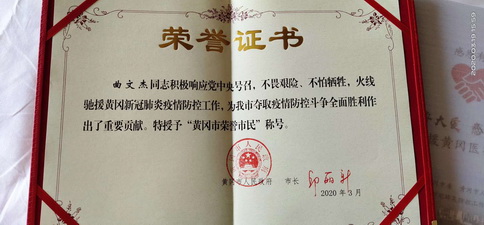 荣誉证书
曲文杰同志积极响应党中央号召，不畏艰险、不怕牺牲，火线
驰援黄冈新冠肺炎疫情防控工作，为我市夺取疫情防控斗争全面胜利作
出了重要贡献。特授予“黄冈市荣誉市民”称号。
黄冈市人民政府 市长
2020年3月
2020.03.19 15:59